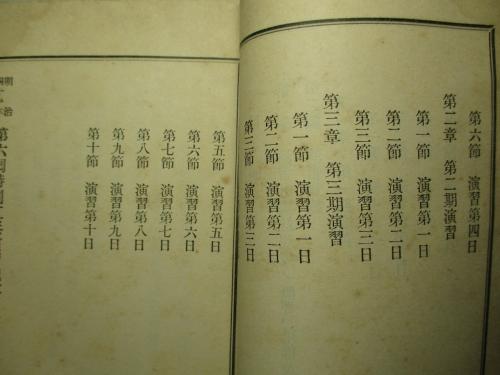 第六節 演習第四日
第二章 第二期演習
第一節 演習第一日
第二節 演習第二日
第三節 演習第三日
第三章 第三期演習
第一節 演習第一日
第二節 演習第二日
第三節 演習第三日
第五節 演習第五日
第六節 演習第六日
第七節 演習第七日
第八節 演習第八日
第九節 演習第九日
第十節 演習第十日